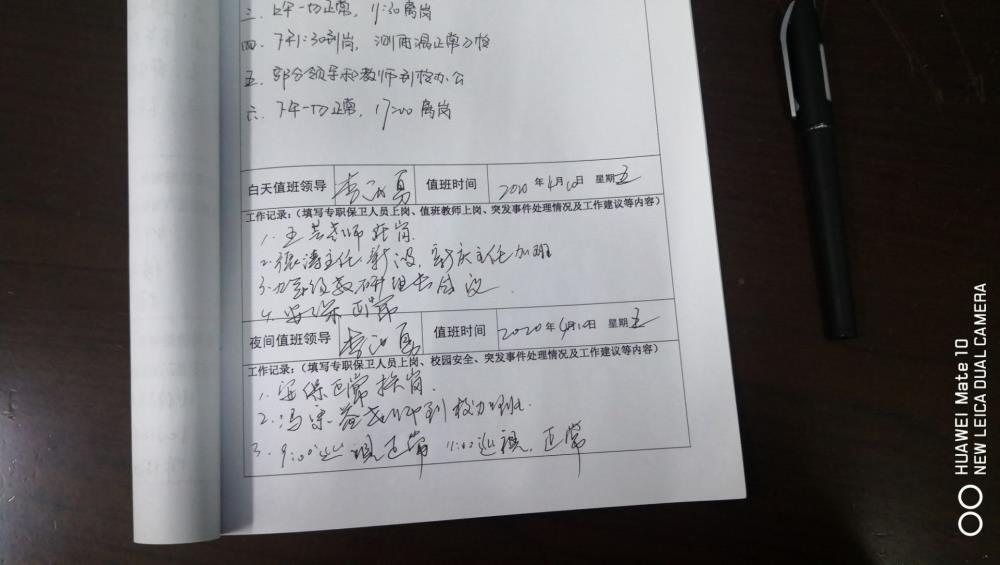 三. 上午一切正常，11:30离岗
四. 下午1:30到岗，测两温正常入校
五. 部分领导和教师到校办公
六. 下午一切正常，17:00离岗
白天值班领导 李 勇 值班时间 2020年4月10日 星期五
工作记录：（填写专职保卫人员上岗、值班教师上岗、突发事件处理情况及工作建议等内容）
1. 王 老师 岗.
2. 涛主任、 主任加班
3. 年级教研组长会议.
4. 安保正常
夜间值班领导 李 勇 值班时间 2020年4月10日 星期五
工作记录：（填写专职保卫人员上岗、校园安全、突发事件处理情况及工作建议等内容）
1. 安保正常换岗.
2. 冯 老师到校加班.
3. 9:00巡视正常 11:00巡视，正常
HUAWEI Mate 10
NEW LEICA DUAL CAMERA